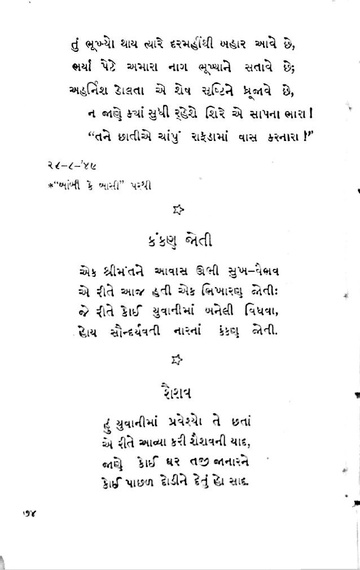 તું ભૂખ્યો થાય ત્યારે દરમહીંથી બહાર આવે છે,
ભર્યા પેટે અમારા નાગ ભૂખ્યાને સતાવે છે;
અહર્નિશ ડોલતા એ શેષ સૃષ્ટિને ધ્રૂજાવે છે,
ન જાણે ક્યાં સુધી રહેશે શિરે એ સાપના ભારા !
“તને છાતીએ ચાંપું રાફડામાં વાસ કરનારા !”
૨૯–૮–’૪૯
*“બાંબી કે બાસી” પરથી
કંકણ જોતી
એક શ્રીમંતને આવાસ ઊભી સુખ–વૈભવ
એ રીતે આજ હતી એક ભિખારણ જોતીઃ
જે રીતે કોઈ યુવાનીમાં બનેલી વિધવા,
હોય સૌન્દર્યવતી નારનાં કંકણ જોતી.
શૈશવ
હું યુવાનીમાં પ્રવેશ્યો તે છતાં
એ રીતે આવ્યા કરી શૈશવની યાદ,
જાણે કોઈ ઘર તજી જાનારને
કોઈ પાછળ દોડીને દેતું હો સાદ.
૭૪